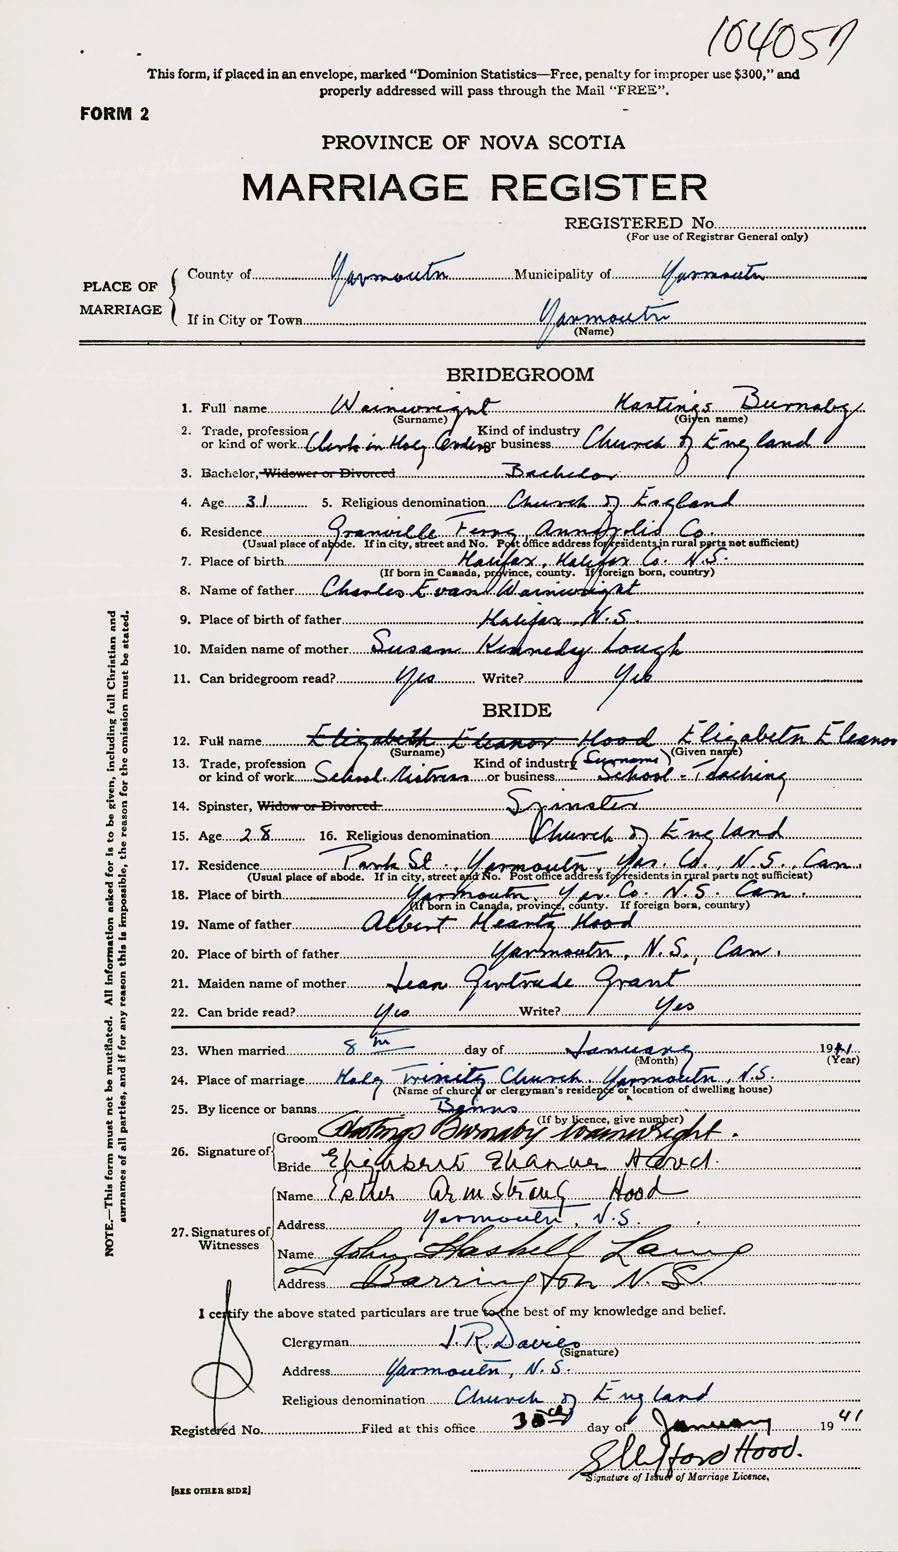 104057
This form, if placed in an envelope, marked "Dominion Statistics—Free, penalty for improper use $300," and
properly addressed will pass through the Mail "FREE".
FORM 2
PROVINCE OF NOVA SCOTIA
MARRIAGE REGISTER
REGISTERED No.
(For use of Registrar General only)
PLACE OF MARRIAGE
County of Yarmouth Municipality of Yarmouth
If in City or Town Yarmouth
(Name)
BRIDEGROOM
1. Full name Wainwright Hastings Burnaby
(Surname) (Given name)
2. Trade, profession or kind of work Clerk in Holy Orders Kind of industry or business Church of England
3. Bachelor, Widower or Divorced Bachelor
4. Age 31 5. Religious denomination Church of England
6. Residence Granville Ferry Annapolis Co.
(Usual place of abode. If in city, street and No. Post office address for residents in rural parts not sufficient)
7. Place of birth Halifax, Halifax Co. N.S.
(If born in Canada, province, county. If foreign born, country)
8. Name of father Charles Evan Wainwright
9. Place of birth of father Halifax, N.S.
10. Maiden name of mother Susan Kennedy Lough
11. Can bridegroom read? Yes Write? Yes
BRIDE
12. Full name Elizabeth Eleanor Hood Elizabeth Eleanor
(Surname) (Given name)
13. Trade, profession or kind of work School Mistress Kind of industry or business (Surname) School-Teaching
14. Spinster, Widow or Divorced Spinster
15. Age 28 16. Religious denomination Church of England
17. Residence Park St., Yarmouth, Yar. Co., N.S., Can.
(Usual place of abode. If in city, street and No. Post office address for residents in rural parts not sufficient)
18. Place of birth Yarmouth, Yar. Co. N.S. Can.
(If born in Canada, province, county. If foreign born, country)
19. Name of father Albert Heartz Hood
20. Place of birth of father Yarmouth, N.S., Can.
21. Maiden name of mother Jean Gertrude Grant
22. Can bride read? Yes Write? Yes
23. When married 8th day of January 1941
(Month) (Year)
24. Place of marriage Holy Trinity Church, Yarmouth, N.S.
(Name of church or clergyman's residence or location of dwelling house)
25. By licence or banns Banns
(If by licence, give number)
26. Signature of
Groom Hastings Burnaby Wainwright.
Bride Elizabeth Eleanor Hood.
27. Signatures of Witnesses
Name Esther Armstrong Hood
Address Yarmouth, N.S.
Name John Haskell Laing
Address Barrington N.S.
I certify the above stated particulars are true to the best of my knowledge and belief.
Clergyman J.R. Davies
(Signature)
Address Yarmouth, N.S.
Religious denomination Church of England
Registered No. Filed at this office day of January 1941
Hood.
Signature of Issuer of Marriage Licence.
[SEE OTHER SIDE]
NOTE.—This form must not be mutilated. All information asked for is to be given, including full Christian and
surnames of all parties, and if for any reason this is impossible, the reason for the omission must be stated.